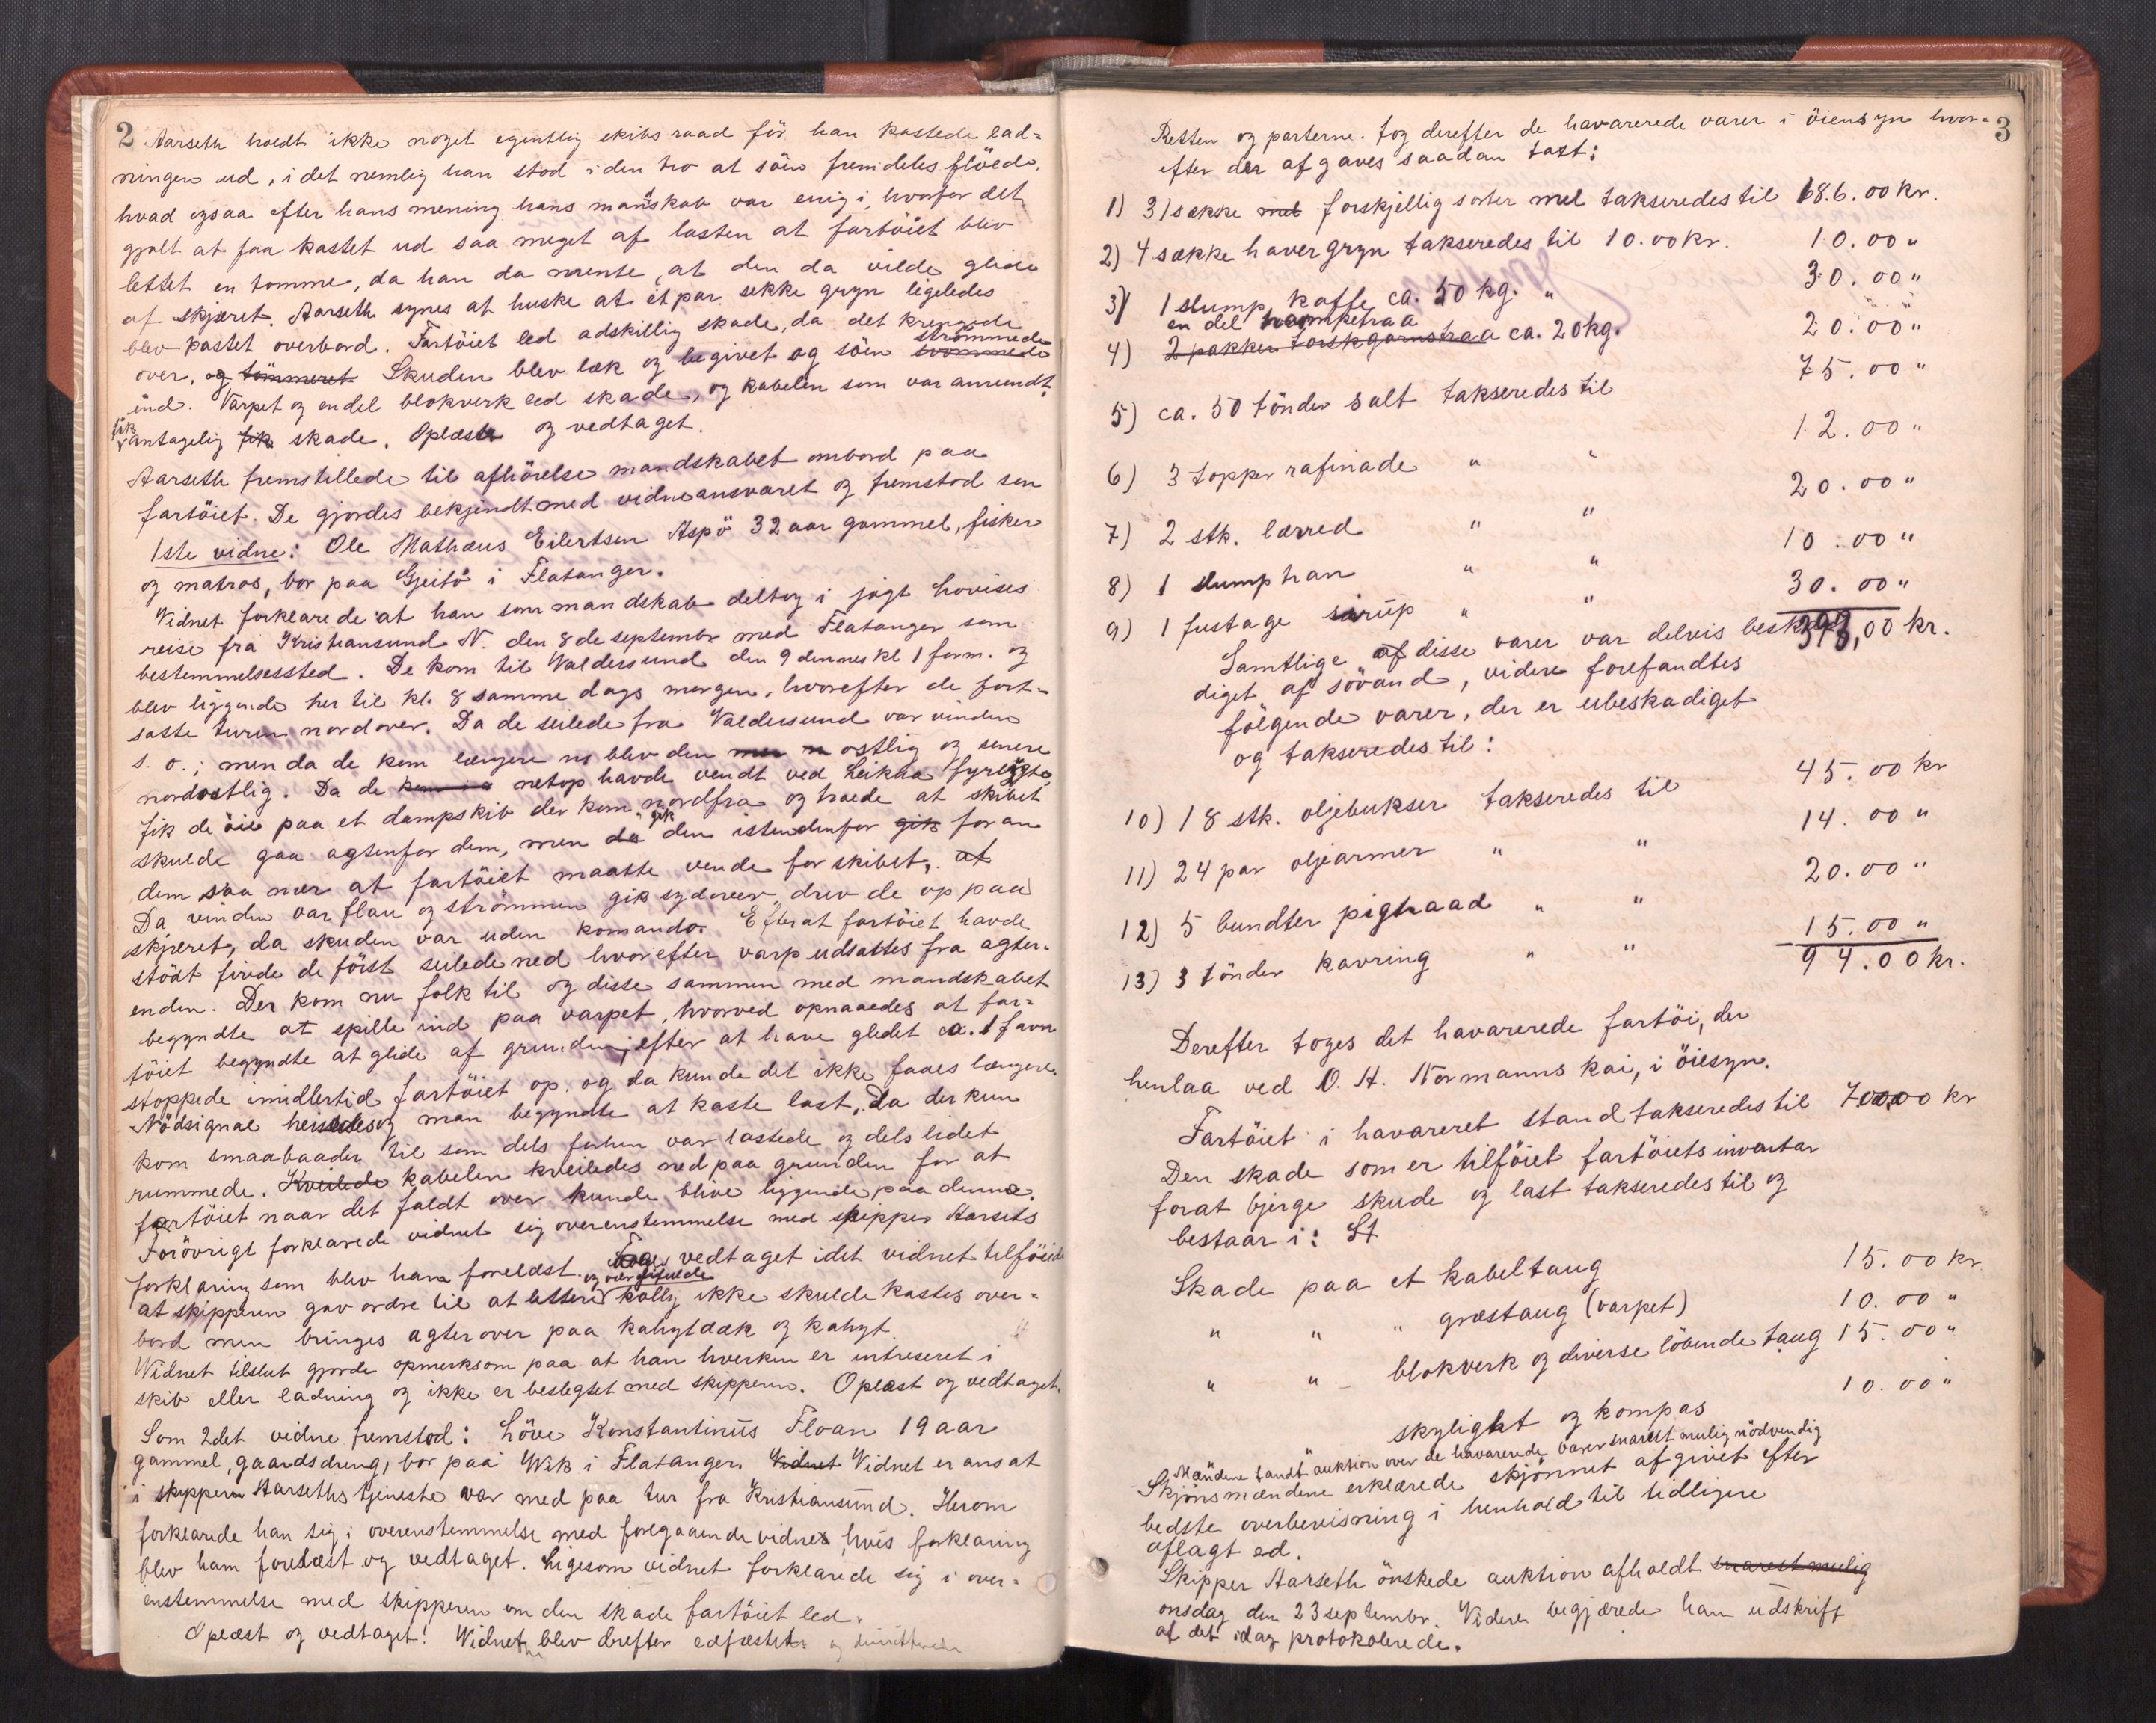 2
Aarseth holdt ikke noget egentlig skibsraad för han kastede lad-
ningen ud, i det nemlig han stod i den tro at söen fremdeles flöede,
hvad ogsaa efter hans mening hans mandskab var enig i, hvorfor det
gjalt at faa kastet ud saa meget af lasten at fartöiet blev
lettet en tomme, da han da mente, at den da vilde glide
af skjæret. Aarseth synes at huske at et par sekke gryn ligeledes
blev kastet overbord. Fartöiet led adskillig skade, da det krengede
over, og tömmeret Skuden blev læk og begivet og söen svömmede strömmede
ind. Varpet og endel blokverk led skade, og kabelen som var anvendt,
fik antagelig fik skade. Oplæst og vedtaget.
Aarseth fremstillede til afhörelse mandskabet ombord paa
fartöiet. De gjordes bekjendt med vidneansvaret og fremstod som
1ste vidne: Ole Mathæus Eilertsen Aspö 32 aar gammel, fisker
og matros, bor paa Gjeitö i Flatanger.
Vidnet forklarede at han som mandskab deltog i jagt Lovises
reise fra Kristiansund N. den 8de septembr med Flatanger som
bestemmelsessted. De kom til Valdersund den 9 dennes kl 1 form. og
blev liggende her til kl. 8 samme dags morgen, hvorefter de fort-
satte turen nordover. Da de seilede fra Valdersund var vinden
s. o.; men da de kom længere no blev den mer n ostlig og senere
nordostlig. Da de kom i a netop havde vendt ved Leikna fyrlygte,
fik de öie paa et dampskib der kom nordfra og troede at skibet
skulde gaa agtenfor dem, men da gik den istendenfor gik foran
dem saa nær at fartöiet maatte vende for skibet, at
Da vinden var flau og strömmen gik sydover, drev de op paa
skjæret, da skuden var uden komando. Efterat fartöiet havde
stödt firede de först seilede ned hvorefter varp udsattes fra agter-
enden. Der kom nu folk til og disse sammen med mandskabet
begyndte at spille ind paa varpet, hvorved opnaaedes at far-
töiet begyndte at glide af grunden; efter at have gledet ca. 1 favn
stoppede imidlertid fartöiet op. og da kunde det ikke faaes længere.
Nödsignal heisedes og man begyndte at kaste last, da der kun
kom smaabaader til som dels forhen var lastede og dels lidet
rummede. Kveilede kabelen kveiledes ned paa grunden for at
fartöiet naar det faldt over kunde blive liggende paa denne.
Forövrigt forklarede vidnet sig overenstemmelse med skipper Aarseths
forklaring som blev ham forelæst. vedtaget idet vidnet tilföiede
at skipperen gav ordre til at lettere og værdifulde kolly ikke skulde kastes over-
bord men bringes agterover paa kahytdæk og kahyt.
Vidnet tilslut gjorde opmerksom paa at han hverken er intreseret i
skib eller ladning og ikke er beslegtet med skipperen. Oplæst og vedtaget.
Som 2det vidne fremstod: Löve Konstantinus Floan 19 aar
gammel, gaardsdreng, bor paa Wik i Flatanger. Vidnet Vidnet er ansat
i skipperen Aarseths tjeneste var med paa tur fra Kristiansund. Herom
forklarede han sig i overenstemmelse med foregaaende vidne, hvis forklaring
blev ham forelæst og vedtaget. Ligesom vidnet forklarede sig i over-
enstemmelse med skipperen om den skade fartöiet led.
Oplæst og vedtaget! Vidnet ne blev drefter edfæstet og dimitterede
3
Retten og parterne. tog derefter de havarerede varer i öiensyn hvor-
efter der afgaves saadan taxt:
1) 31 sække mel forskjellig sorter mel takseredes til 186.00 kr.
2) 4 sække havergryn takseredes til 10.00 kr. 10.00 "
3) 1 slump kaffe ca. 50 kg. " 30.00 "
en del hampetraa
4) 2 pakker torskgarnstraa ca. 20 kg. 20.00 "
5) ca. 50 tönder salt takseredes til 75.00 "
6) 3 topper rafinade " " 12.00 "
7) 2 stk. lærred " " 20.00 "
8) 1 slump tran " " 10.00 "
9) 1 fustage sirup " " 30.00 "
393,00 kr.
Samtlige af disse varer var delvis beska-
diget af sövand, videre forefandtes
fölgende varer, der er ubeskadiget
og takseredes til:
10) 18 stk. oljebukser takseredes til 45.00 kr
11) 24 par oljearmer " " 14.00 "
12) 5 bundter pigtraad " " 20.00 "
13) 3 tönder kavring " " 15.00 "
94.00 kr.
Derefter toges det havarerede fartöi, der
henlaa ved O. H. Normanns kai, i öiesyn.
Fartöiet i havareret stand takseredes til 700,00 kr
Den skade som er tilföiet fartöiets inventar
forat bjerge skude og last takseredes til og
bestaar i: St
Skade paa et kabeltaug 15.00 kr
" " " græstaug (varpet) 10.00 "
" " - blokverk og diverse löbende taug 15.00 "
skylight og kompas 10.00 "
Mændene fandt auktion over de havarerede varer snarest mulig nödvendig
Skjönsmændene erklærede skjönnet afgivet efter
bedste overbevisning i henhold til tidligere
aflagt ed.
Skipper Aarseth önskede auktion afholdt snarest mulig
onsdag den 23 septembr. Videre begjærede han udskrift
af det idag protokolerede.